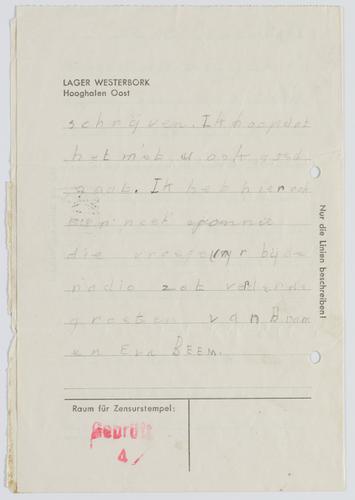 LAGER WESTERBORK
Hooghalen Oost
schrijven. Ik hoop dat
het met u ook goed
gaat. Ik heb hier
die vroeger bij de
radio zat
groeten van Bram
en Eva BEEM.
Nur die Linien beschreiben!
Raum für Zensurstempel:
Geprüft
4